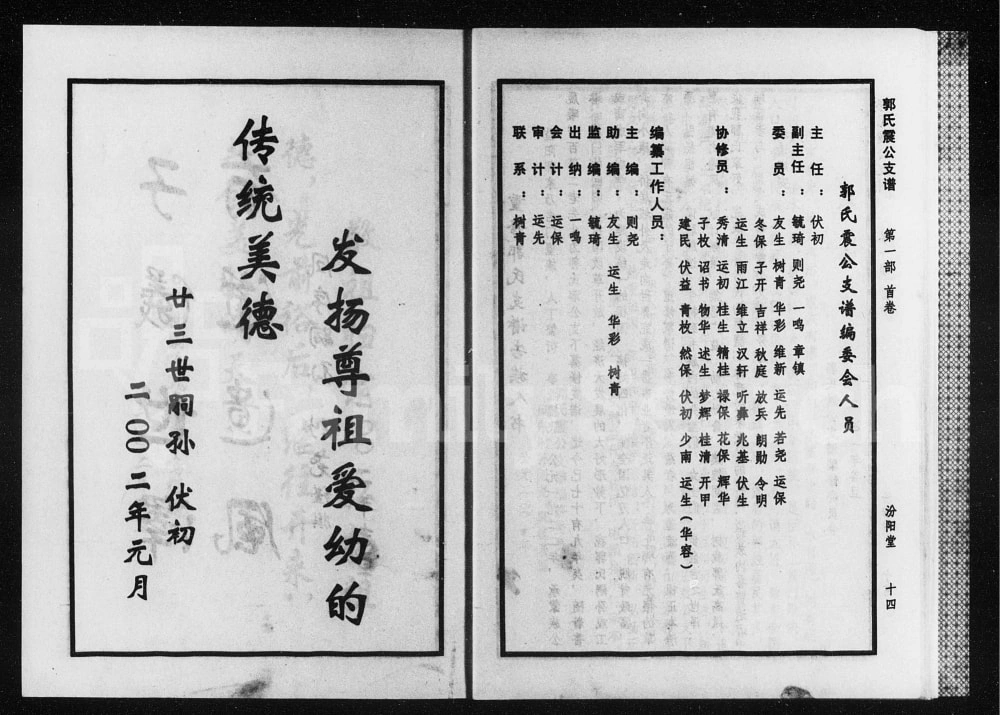 郭氏震公支谱 第一部 首卷 汾阳堂 十四
郭氏震公支谱编委会人员
主任：伏初
副主任：毓琦 则尧 一鸣 章镇
委员：友生 树青 华彩 维新 运先 若尧 运保
冬保 子开 吉祥 秋庭 放兵 朗勋 令明
运生 雨江 维立 汉轩 听彝 兆基 伏生
协修员：秀清 运初 桂生 精桂 禄保 花保 辉华
子枚 诏书 物华 述生 梦辉 桂清 开甲
建民 伏益 青枚 然保 伏初 少南 运生（华容）
编纂工作人员：
主编：则尧
助编：友生 运生 华彩 树青
监编：毓琦
出纳：一鸣
会计：运保
审计：运先
联系：树青
发扬尊祖爱幼的
传统美德
廿三世嗣孙 伏初
二00二年元月